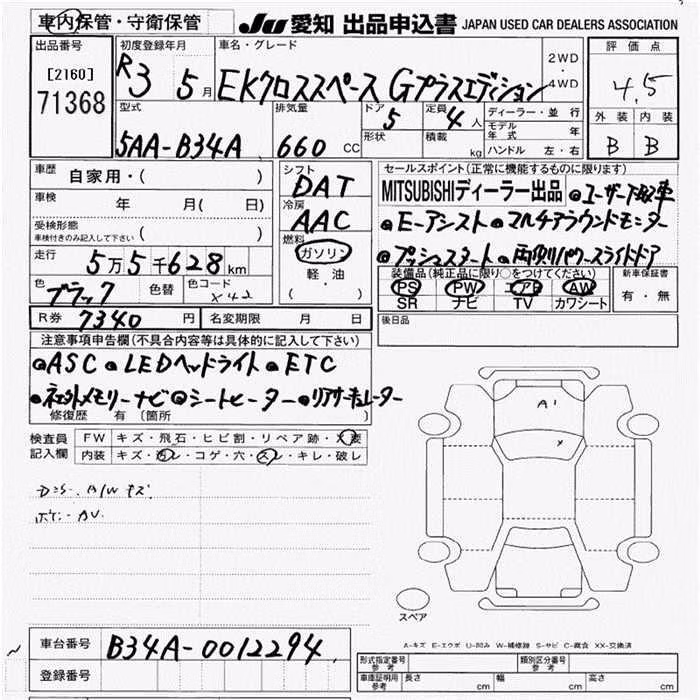 車内保管・守衛保管
JU 愛知 出品申込書 JAPAN USED CAR DEALERS ASSOCIATION
出品番号 [2160] 71368
初度登録年月 R3 5月
車名・グレード EKクロススペース Gプラスエディション
2WD・4WD
評価点 4.5
外装 内装
B B
型式 5AA-B34A
排気量 660 CC
ドア 5
形状
定員 4 人
積載 kg
ディーラー・並行
モデル年式 年
ハンドル 左・右
車歴 自家用・( )
車検 年 月( 日)
受検形態 車検付きのみ記入して下さい ( )
走行 5万5千628km
色 ブラック 色替 色コード X42
シフト DAT
冷房 AAC
燃料 ガソリン
軽油
( ・ )
セールスポイント(正常に機能するものに限ります)
MITSUBISHIディーラー出品 ●ユーザー下取車
●Eーアシスト ●マルチアラウンドモニター
●プッシュスタート ●両側パワースライドドア
装備品(純正品に限り○をつけてください)
PS PW エアB AW
SR ナビ TV カワシート
新車保証書 有・無
R券 7340円 名変期限 月 日
後日品
注意事項申告欄(不具合内容等は具体的に記入して下さい)
●ASC ●LEDヘッドライト ●ETC
●ネット メモリーナビ ●シートヒーター ●リアサーキュレーター
修復歴 有 〔箇所 〕
検査員記入欄
FW キズ・飛石・ヒビ割・リペア跡・X要
内装 キズ・汚レ・コゲ・穴・スレ・キレ・破レ
A/Wキズ
A1
スペア
A-キズ E-エクボ U-凹み W-補修跡 S-サビ C-腐食 XX-交換済
車台番号 B34A-0012294
登録番号
形式指定番号 参考
類別区分番号 参考
車庫証明用 参考 長さ cm 幅 cm 高さ cm